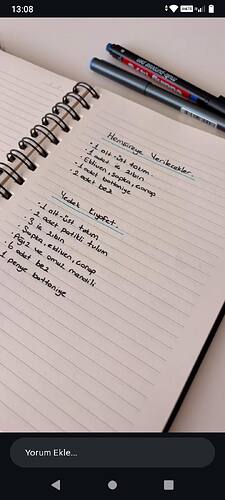 13:08
Hemşireye Verilecekler.
· 1 alt-üst takım
· 1 adet iç zıbın
· Eldiven, şapka, çorap
· 1 adet battaniye
· 2 adet bez
Yedek Kıyafet.
· 1 alt-üst takım
· 2 adet patikli tulum
· 3 iç zıbın
· Şapka, eldiven, çorap
· Ağız ve omuz mendili
· 6 adet bez
1 penye battaniye
Yorum Ekle...